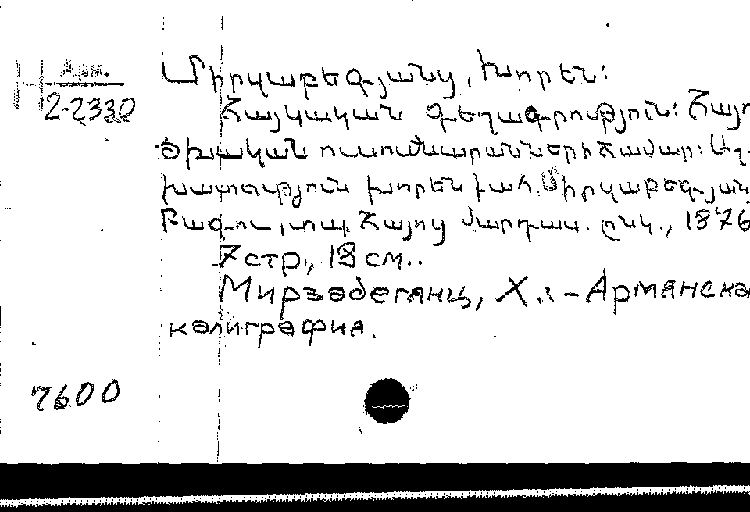 Арм.
2-2330
Միրզաբեգյանց, Խորեն:
Հայկական գեղագրություն: Հայ
ծխական ուսումնարանների համար:
խատություն խորեն քահ. Միրզաբեգյան
Բագու, տպ. Հայոց մարդաս. ընկ., 1876
7 стр., 18 см..
Мирзабегянц, Х.: – Армянска
калиграфиа.
7600